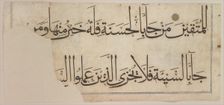 للمتقين من جاء بالحسنة فله خير منها ومن
جاء بالسيئة فلا يجزى الذين عملوا السيئات